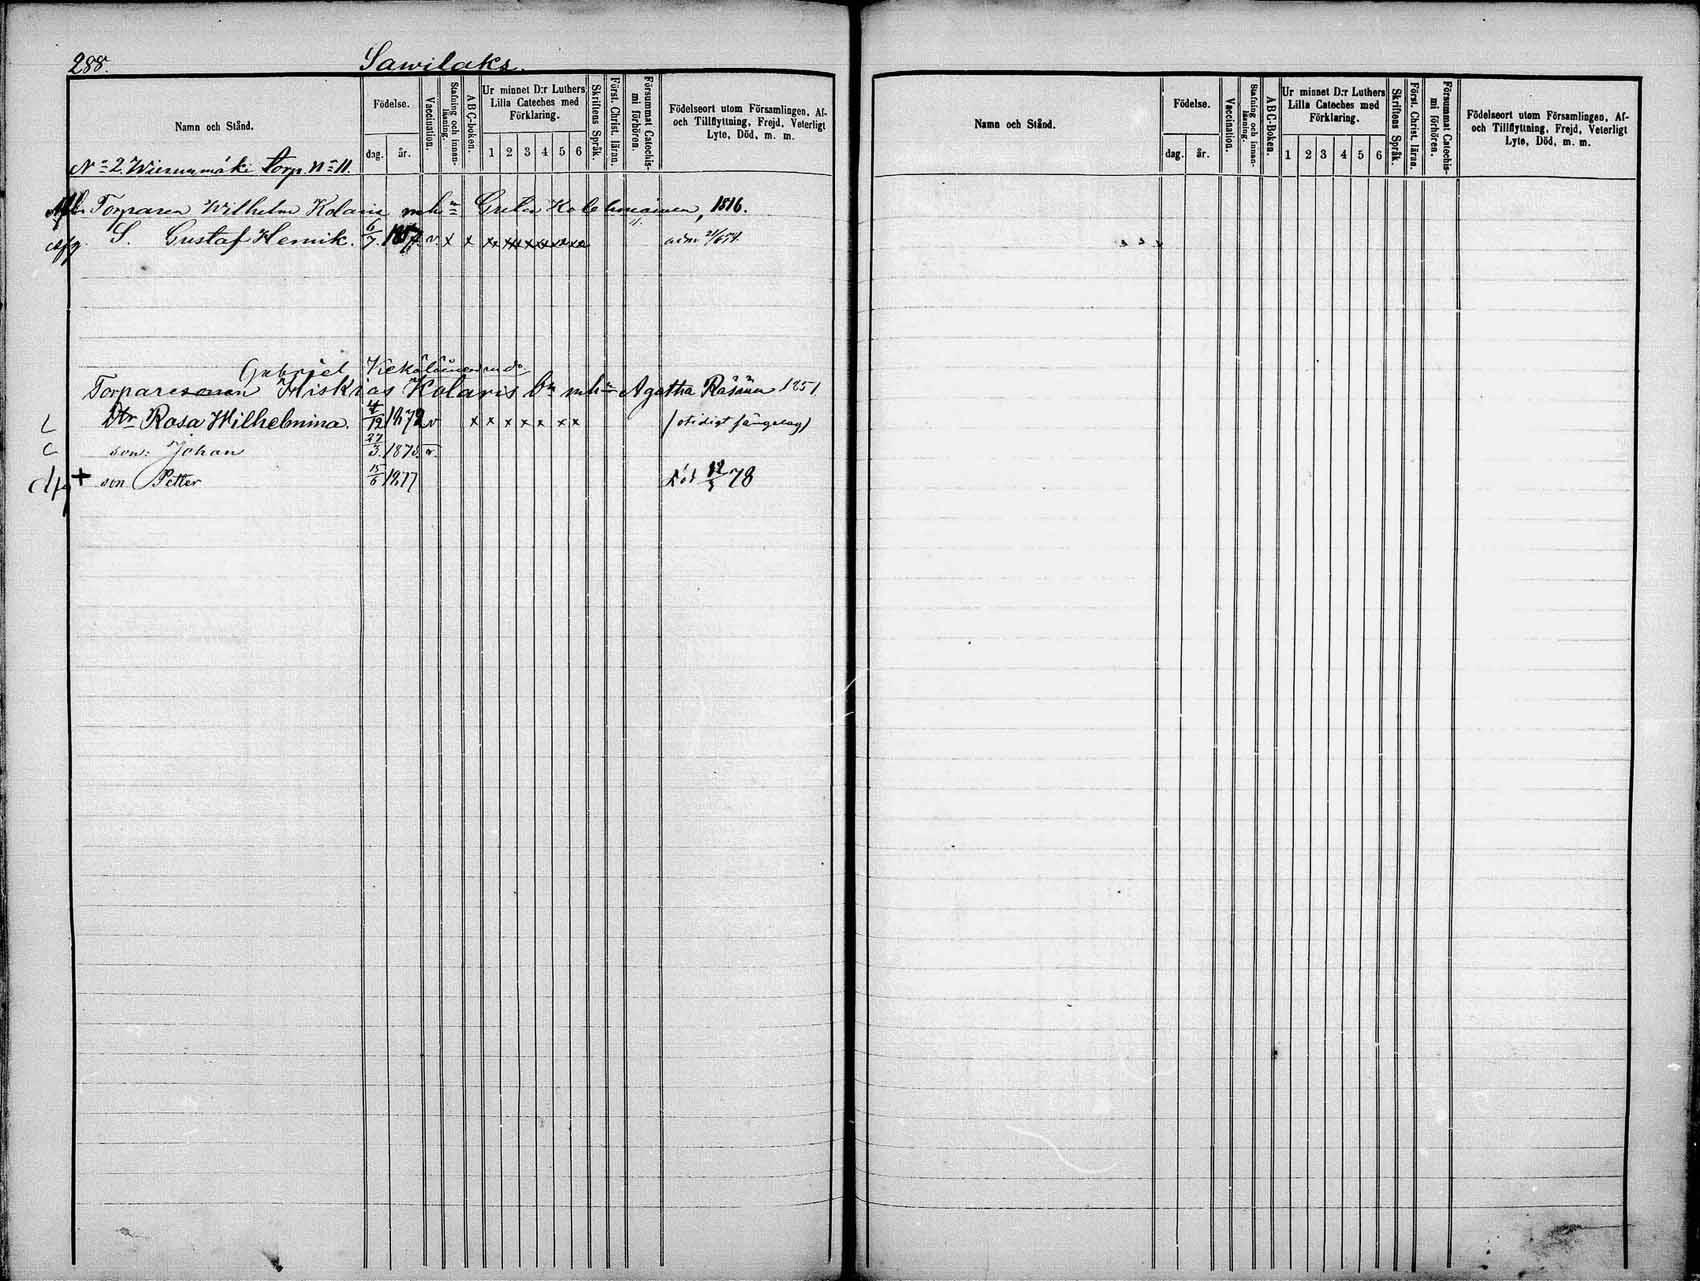 288.
Sawilaks.
Namn och Stånd.
Födelse.
dag. år.
Vaccination.
Stafning och innan-läsning.
ABC-boken.
Ur minnet D:r Luthers Lilla Cateches med Förklaring.
1 2 3 4 5 6
Skriftens Språk.
Först. Christ. läran.
Försummat Catechis-mi förhören.
Födelseort utom Församlingen, Af- och Tillflyttning, Frejd, Veterligt Lyte, Död, m. m.
N:o 2 torp. N:o 11.
Torparen Wilhelm Kolaris m. h:u Greta Kolehmainen, 1816.
afg. S. Gustaf Henrik. 6/7 1857 v x x x x x x x x
Gabriel
Torparesonen Hiskias Kolaris b:n m h:u Agatha Räsänen 1851
Dtr Rosa Wilhelmina. 4/12 1872 v x x x x x x x
son: Johan 27/3 1875. v.
+ son Petter 15/6 1877 död 12/5 78
Namn och Stånd.
Födelse.
dag. år.
Vaccination.
Stafning och innan-läsning.
ABC-Boken.
Ur minnet D:r Luthers Lilla Cateches med Förklaring.
1 2 3 4 5 6
Skriftens Språk.
Först. Christ. läran.
Försummat Catechis-mi förhören.
Födelseort utom Församlingen, Af- och Tillflyttning, Frejd, Veterligt Lyte, Död, m. m.